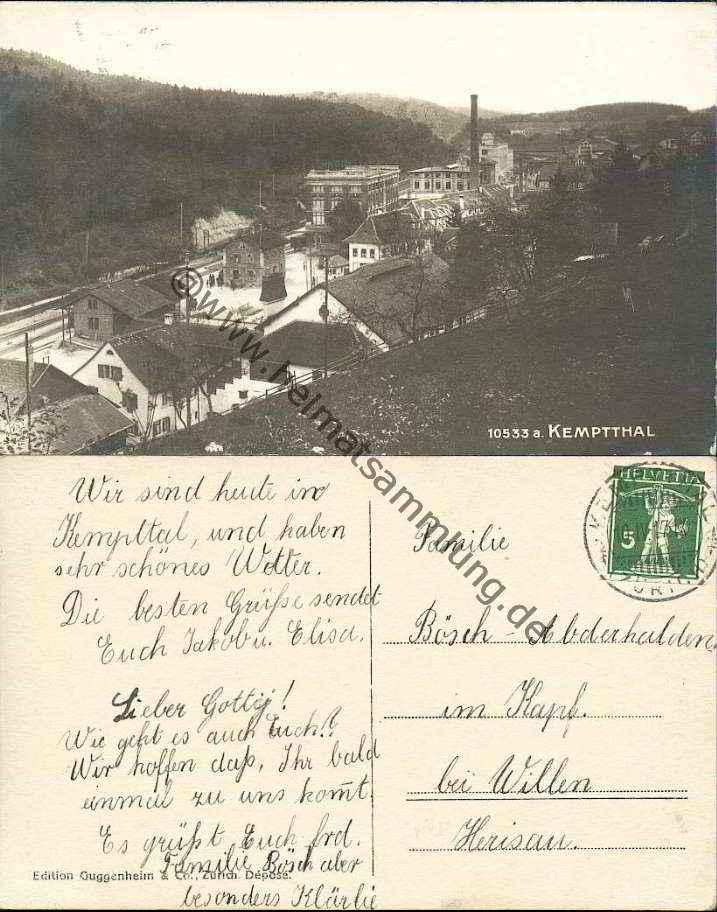 10533 a. KEMPTTHAL
© www.heimatsammlung.de
Wir sind heute in
Kempttal, und haben
sehr schönes Wetter.
Die besten Grüsse sendet
Euch Jakob u. Elisa.
Lieber Gotti!
Wie geht es auch Euch!?
Wir hoffen daß, Ihr bald
einmal zu uns kom̄t.
Es grüßt Euch frd.
Familie Bösch aber
besonders Klärlie
Edition Guggenheim & Co., Zürich. Déposé.
HELVETIA
5
Familie
Bösch - Abderhalden.
im Kapf.
bei Willen
Herisau.